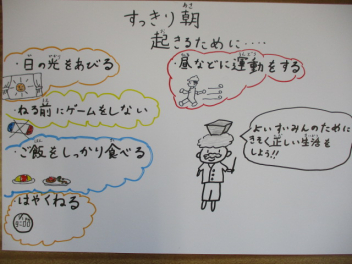 すっきり朝
起きるために‥‥
・日の光をあびる
・ねる前にゲームをしない
・ご飯をしっかり食べる
はやくねる
9:00
・昼などに運動をする
よいすいみんのために
きそく正しい生活を
しよう!!